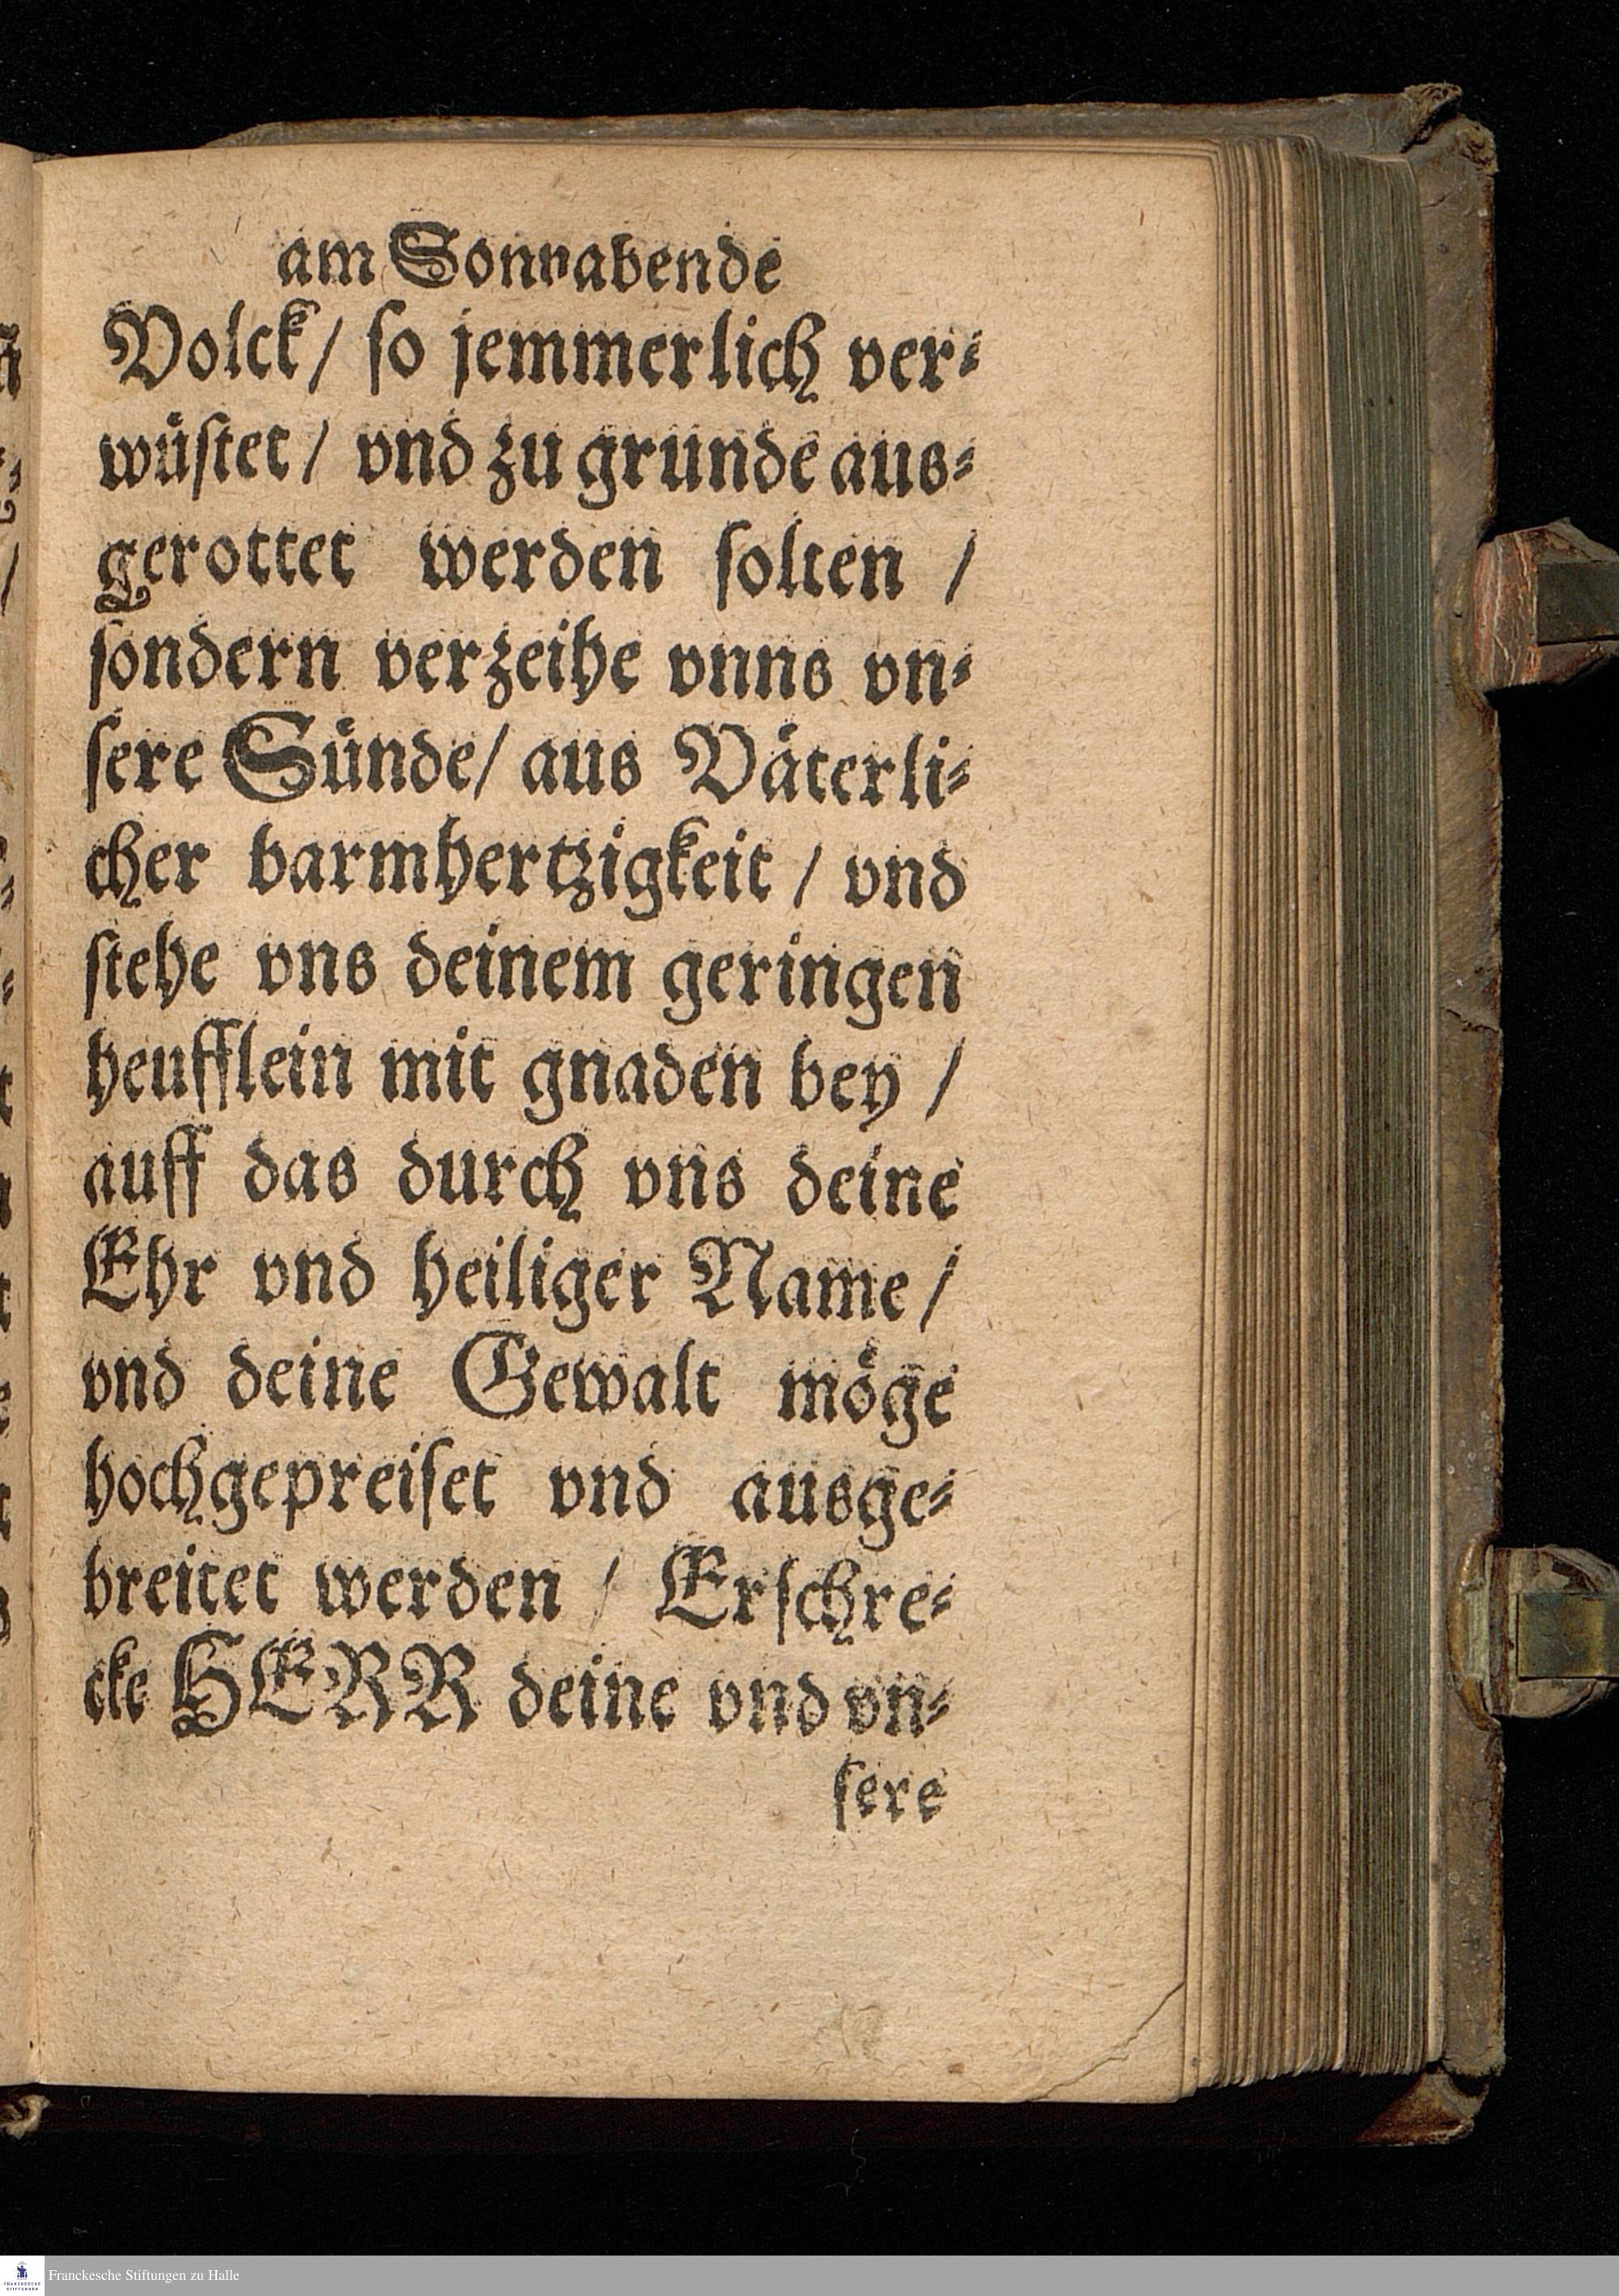 am Sonnabende
Volck/ ſo jemmerlich ver⸗
wuͤſtet/ vnd zu grunde aus⸗
gerottet werden ſolten /
ſondern verzeihe vnns vn⸗
ſere Suͤnde/ aus Vaͤterli⸗
cher barmhertzigkeit / vnd
ſtehe vns deinem geringen
heufflein mit gnaden bey /
auff das durch vns deine
Ehr vnd heiliger Name /
vnd deine Gewalt moͤge
hochgepreiſet vnd ausge⸗
breitet werden / Erſchre⸗
cke HERR deine vnd vn⸗
ſere
Franckesche Stiftungen zu Halle
FRANCKESCHE
STIFTUNGEN